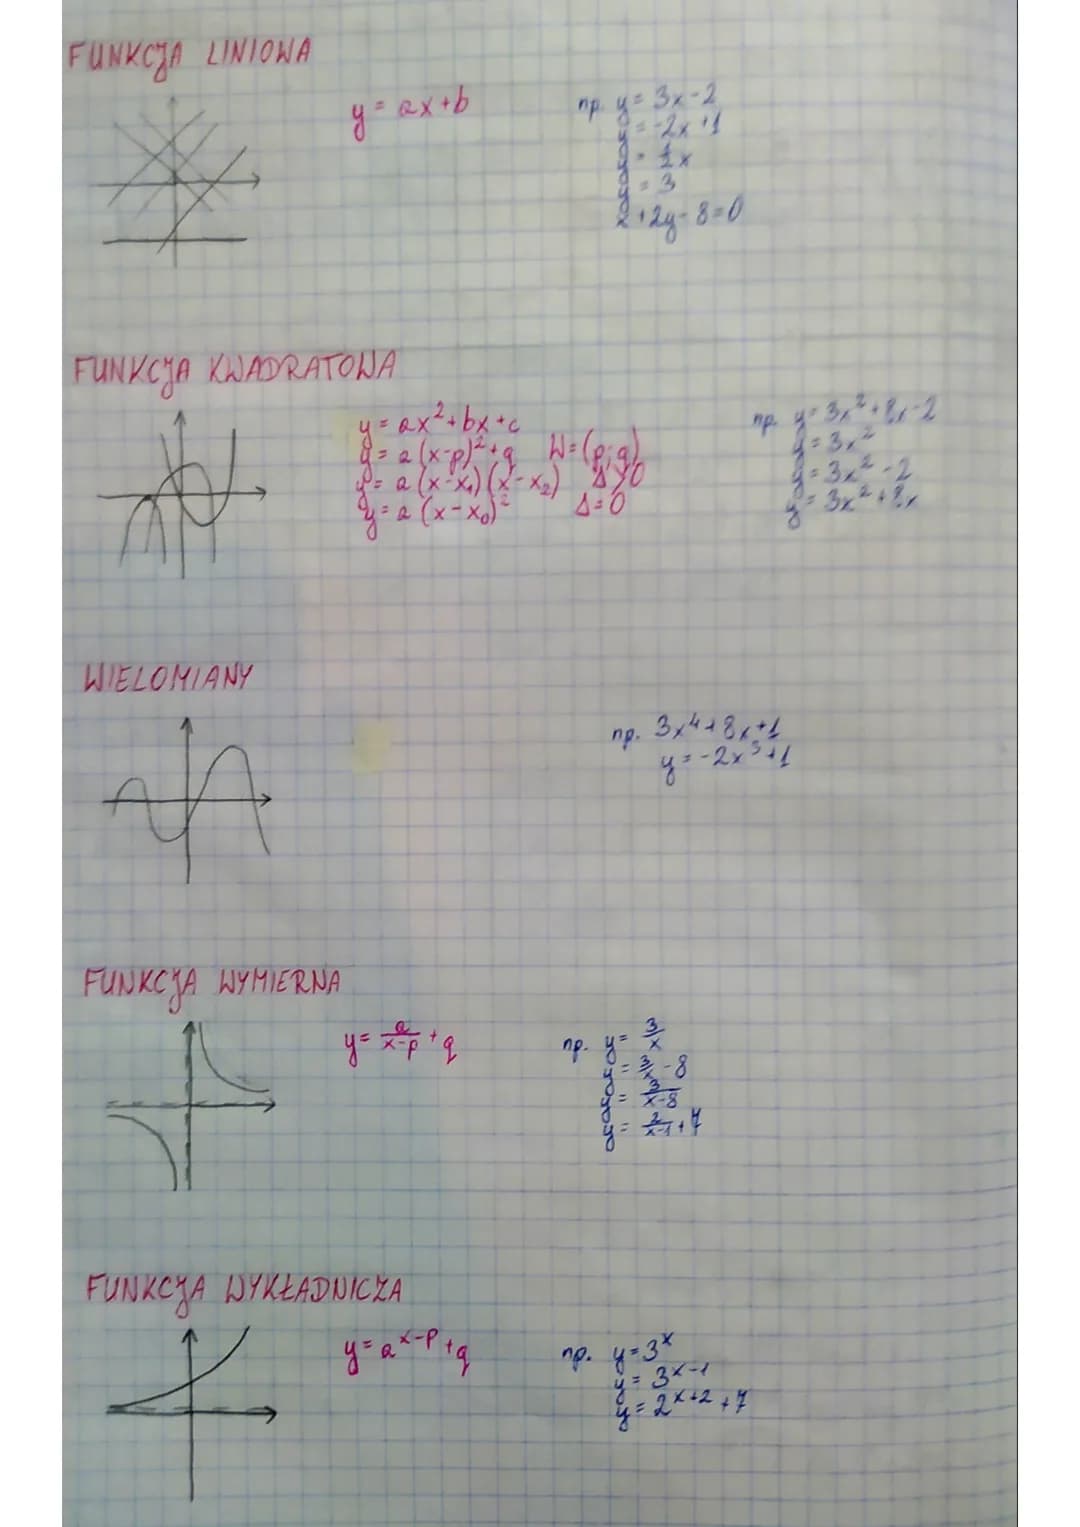 FUNKCJA LINIOWA
y = ax+b
np. y = 3x-2
y = -2x+1
y = 1/2x
y = 3
x+2y-8=0
FUNKCJA KWADRATOWA
y = ax²+bx+c
y = a(x-p)²+q W=(p;q)
y = a(x-x₁)(x-x₂) Δ>0
y = a(x-x₀)² Δ=0
np. y = 3x²+8x-2
y = 3x²
y = 3x²-2
y = 3x²+8x
WIELOMIANY
np. 3x⁴+8x+1
y = -2x³+1
FUNKCJA WYMIERNA
y = a/(x-p) + q
np. y = 3/x
y = 3/x - 8
y = 3/(x-8)
y = 2/(x-1) + 7
FUNKCJA WYKŁADNICZA
y = aˣ⁻ᵖ+q
np. y = 3ˣ
y = 3ˣ⁻¹
y = 2ˣ⁺² + 7